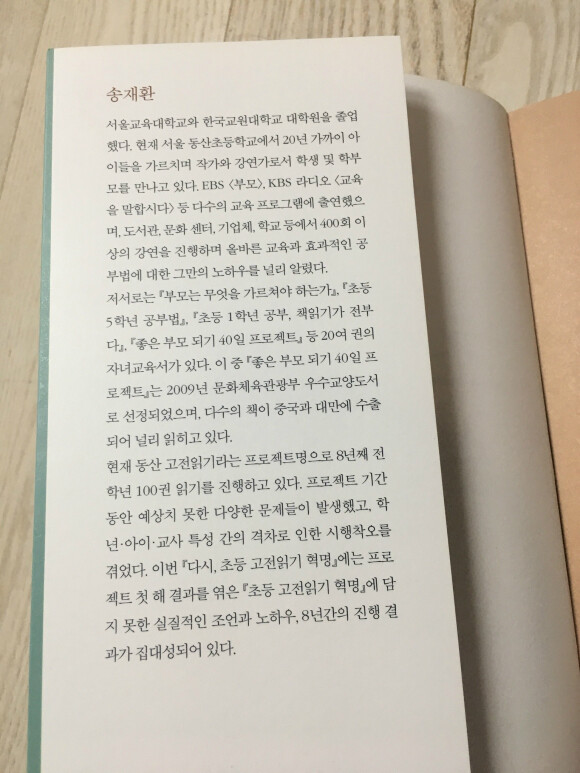 송재환
서울교육대학교와 한국교원대학교 대학원을 졸업
했다. 현재 서울 동산초등학교에서 20년 가까이 아
이들을 가르치며 작가와 강연가로서 학생 및 학부
모를 만나고 있다. EBS 〈부모〉, KBS 라디오 〈교육
을 말합시다〉 등 다수의 교육 프로그램에 출연했으
며, 도서관, 문화 센터, 기업체, 학교 등에서 400회 이
상의 강연을 진행하며 올바른 교육과 효과적인 공
부법에 대한 그만의 노하우를 널리 알렸다.
저서로는 『부모는 무엇을 가르쳐야 하는가』, 『초등
5학년 공부법』, 『초등 1학년 공부, 책읽기가 전부
다』, 『좋은 부모 되기 40일 프로젝트』 등 20여 권의
자녀교육서가 있다. 이 중 『좋은 부모 되기 40일 프
로젝트』는 2009년 문화체육관광부 우수교양도서
로 선정되었으며, 다수의 책이 중국과 대만에 수출
되어 널리 읽히고 있다.
현재 동산 고전읽기라는 프로젝트명으로 8년째 전
학년 100권 읽기를 진행하고 있다. 프로젝트 기간
동안 예상치 못한 다양한 문제들이 발생했고, 학
년·아이·교사 특성 간의 격차로 인한 시행착오를
겪었다. 이번 『다시, 초등 고전읽기 혁명』에는 프로
젝트 첫 해 결과를 엮은 『초등 고전읽기 혁명』에 담
지 못한 실질적인 조언과 노하우, 8년간의 진행 결
과가 집대성되어 있다.